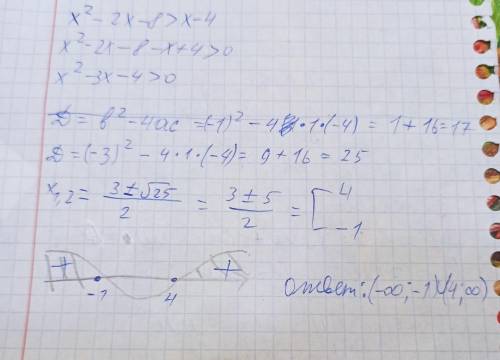 x² - 2x - 8 > x - 4
x² - 2x - 8 - x + 4 > 0
x² - 3x - 4 > 0
D = b² - 4ac = (-1)² - 4 · 1 · (-4) = 1 + 16 = 17
D = (-3)² - 4 · 1 · (-4) = 9 + 16 = 25
x₁,₂ = (3 ± √25)/2 = (3 ± 5)/2 = [ 4
-1
+ +
-1 4
Ответ: (-∞; -1)∪(4; ∞)